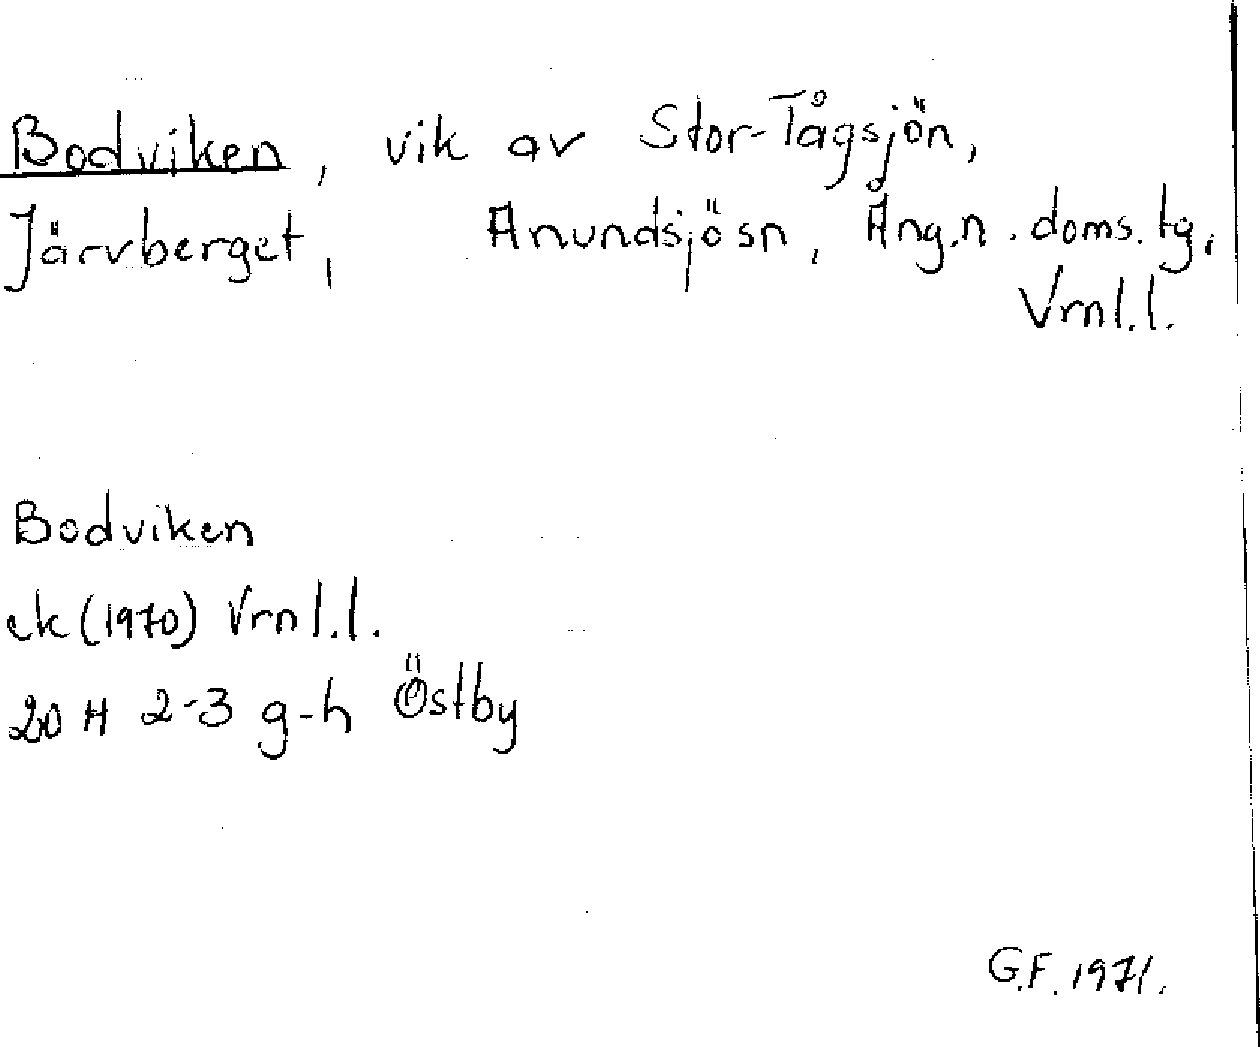 Bodviken, vik av Stor-Tågsjön,
Järvberget, Anundsjösn, Ång.n. doms.tg.
Vrnl.l.
Bodviken
ek (1970) Vrnl.l.
20 H 2-3 g-h Östby
G.F. 1971.